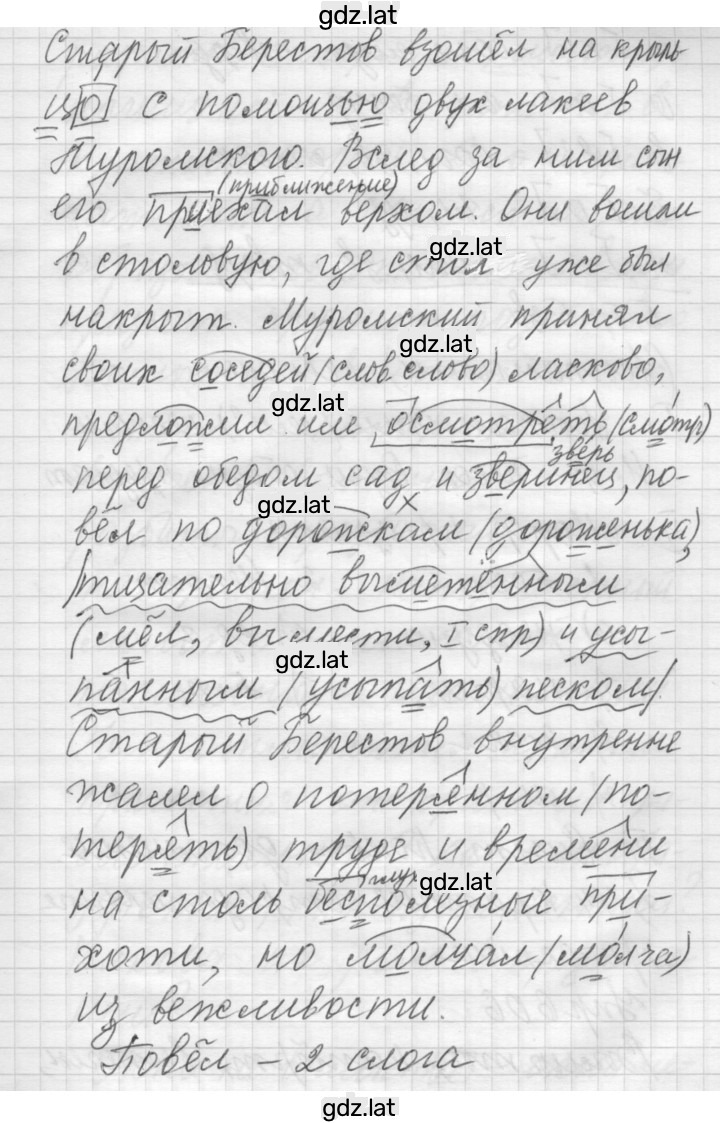 gdz.lat
Старый Берестов взошёл на крыль
цо с помощью двух лакеев
Муромского. Вслед за ним сын
(приближение)
его приехал верхом. Они вошли
gdz.lat
в столовую, где стол уже был
накрыт. Муромский принял
gdz.lat
своих соседей (слов слово) ласково,
gdz.lat
предложил им осмотреть (смотр)
зверь
перед обедом сад и зверинец, по-
gdz.lat
вёл по дорожкам (дороженька),
тщательно выметенным
(мёл, вымести, I спр) и усы-
gdz.lat
панным (усыпать) песком.
Старый Берестов внутренне
жалел о потерянном (по-
терять) труде и времени
глух
gdz.lat
на столь бесполезные при-
хоти, но молчал (молча)
из вежливости.
Повёл – 2 слога
gdz.lat